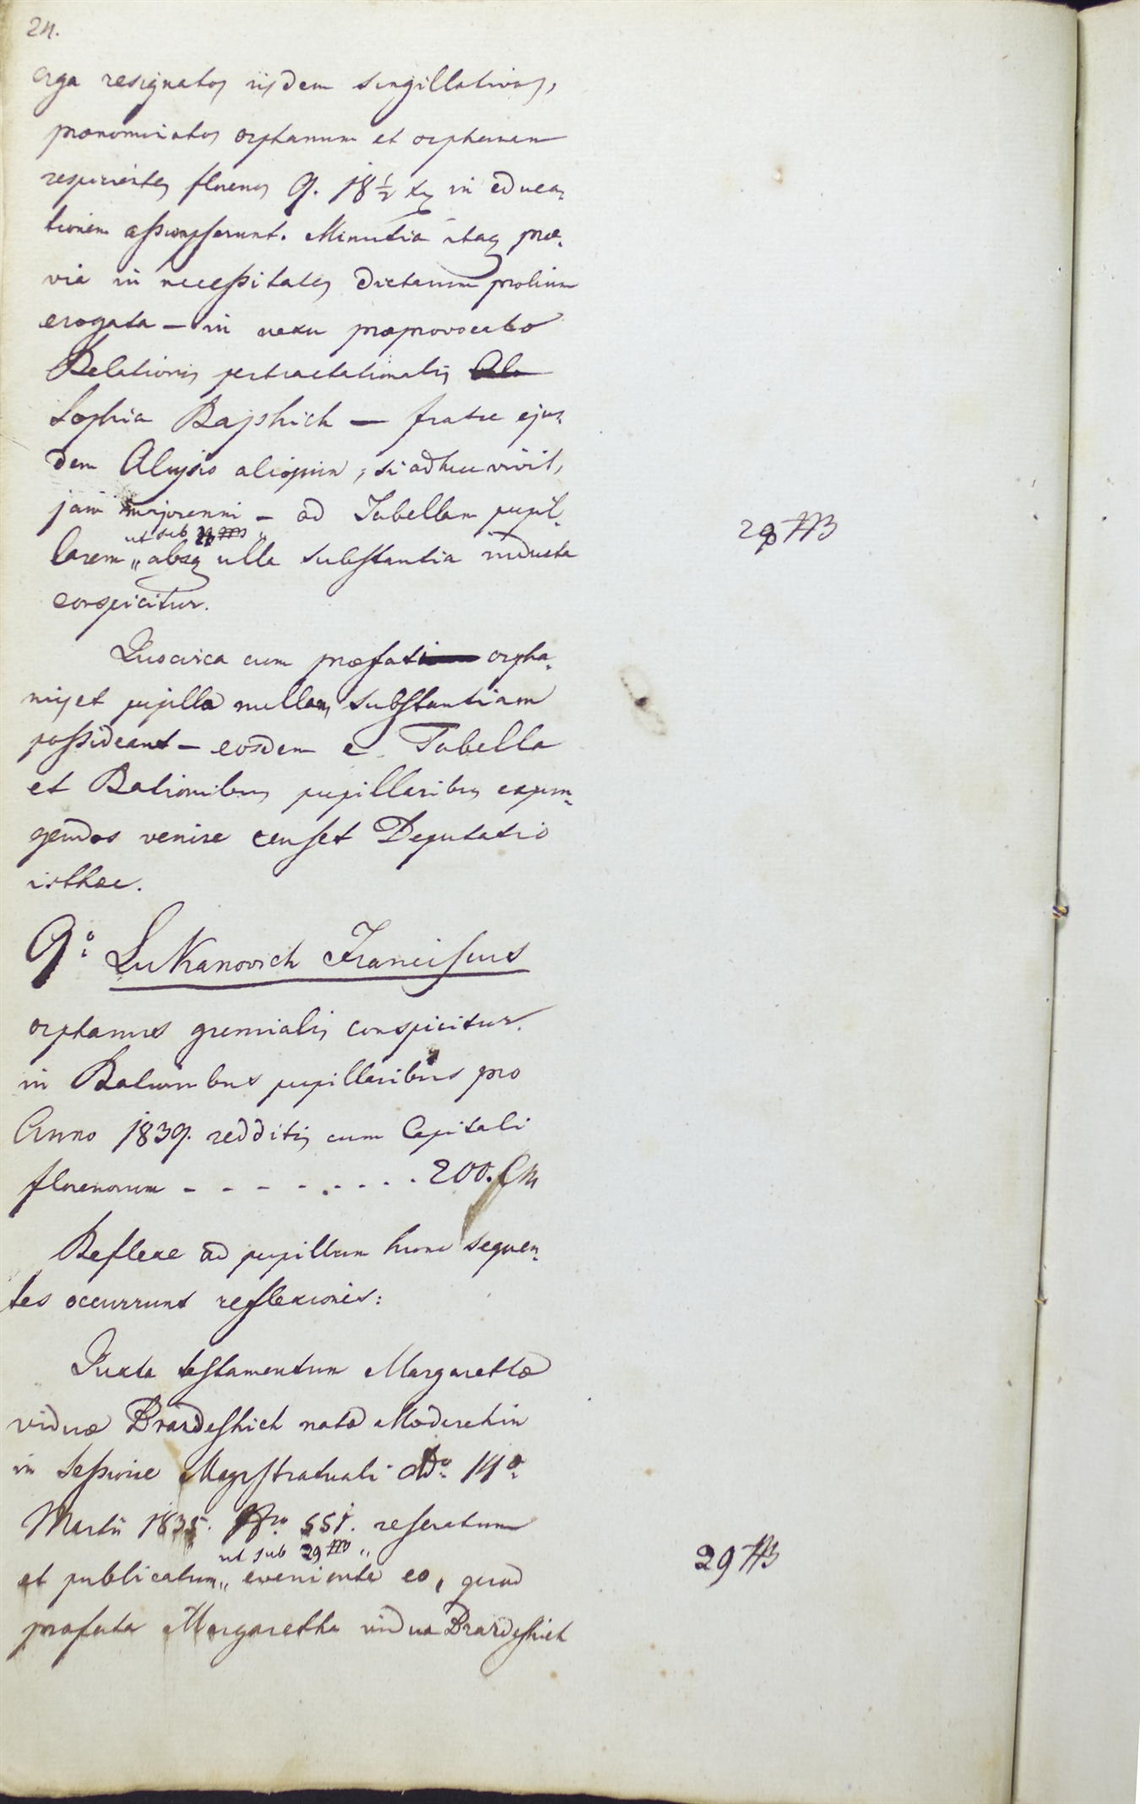 24.
erga resignatos iisdem singillativos,
prænominatos orphanum et orphanam
respicientes florenos 9. 18 1/2 xr in educa-
tionem assumpserunt. Minutia itaq præ-
via in necessitates dictarum prolium
erogata — in nexu præprovocatæ
Relationis pertractationalis
Sophia Bajshich — fratre ejus-
dem Aloysio alioquin, si adhuc vivit,
jam majorenni — ad Tabellam pupil-
ut sub
larem „ absq ulla substantia inducta
28 #B
conspicitur.
Quocirca cum præfati orpha-
ni, et pupilla nullam substantiam
possideant — eosdem e Tabella
et Rationibus pupillaribus expun-
gendos venire censet Deputatio
isthæc.
9o: Lukanovich Franciscus
orphanus gremialis conspicitur
in Rationibus pupillaribus pro
Anno 1839. redditis cum Capitali
florenorum - - - - - - - - 200. CM
Reflexe ad pupillum hunc sequen-
tes occurrunt reflexiones:
Juxta testamentum Margarethæ
viduæ Brardeshich natæ Moderchin
in Sessione Magistratuali ddo 14o:
Martii 1835. Nro 551. reseratum
ut sub 29 #B „
et publicatum „ eveniente eo, quod
29 #B
præfata Margaretha vidua Brardeshich